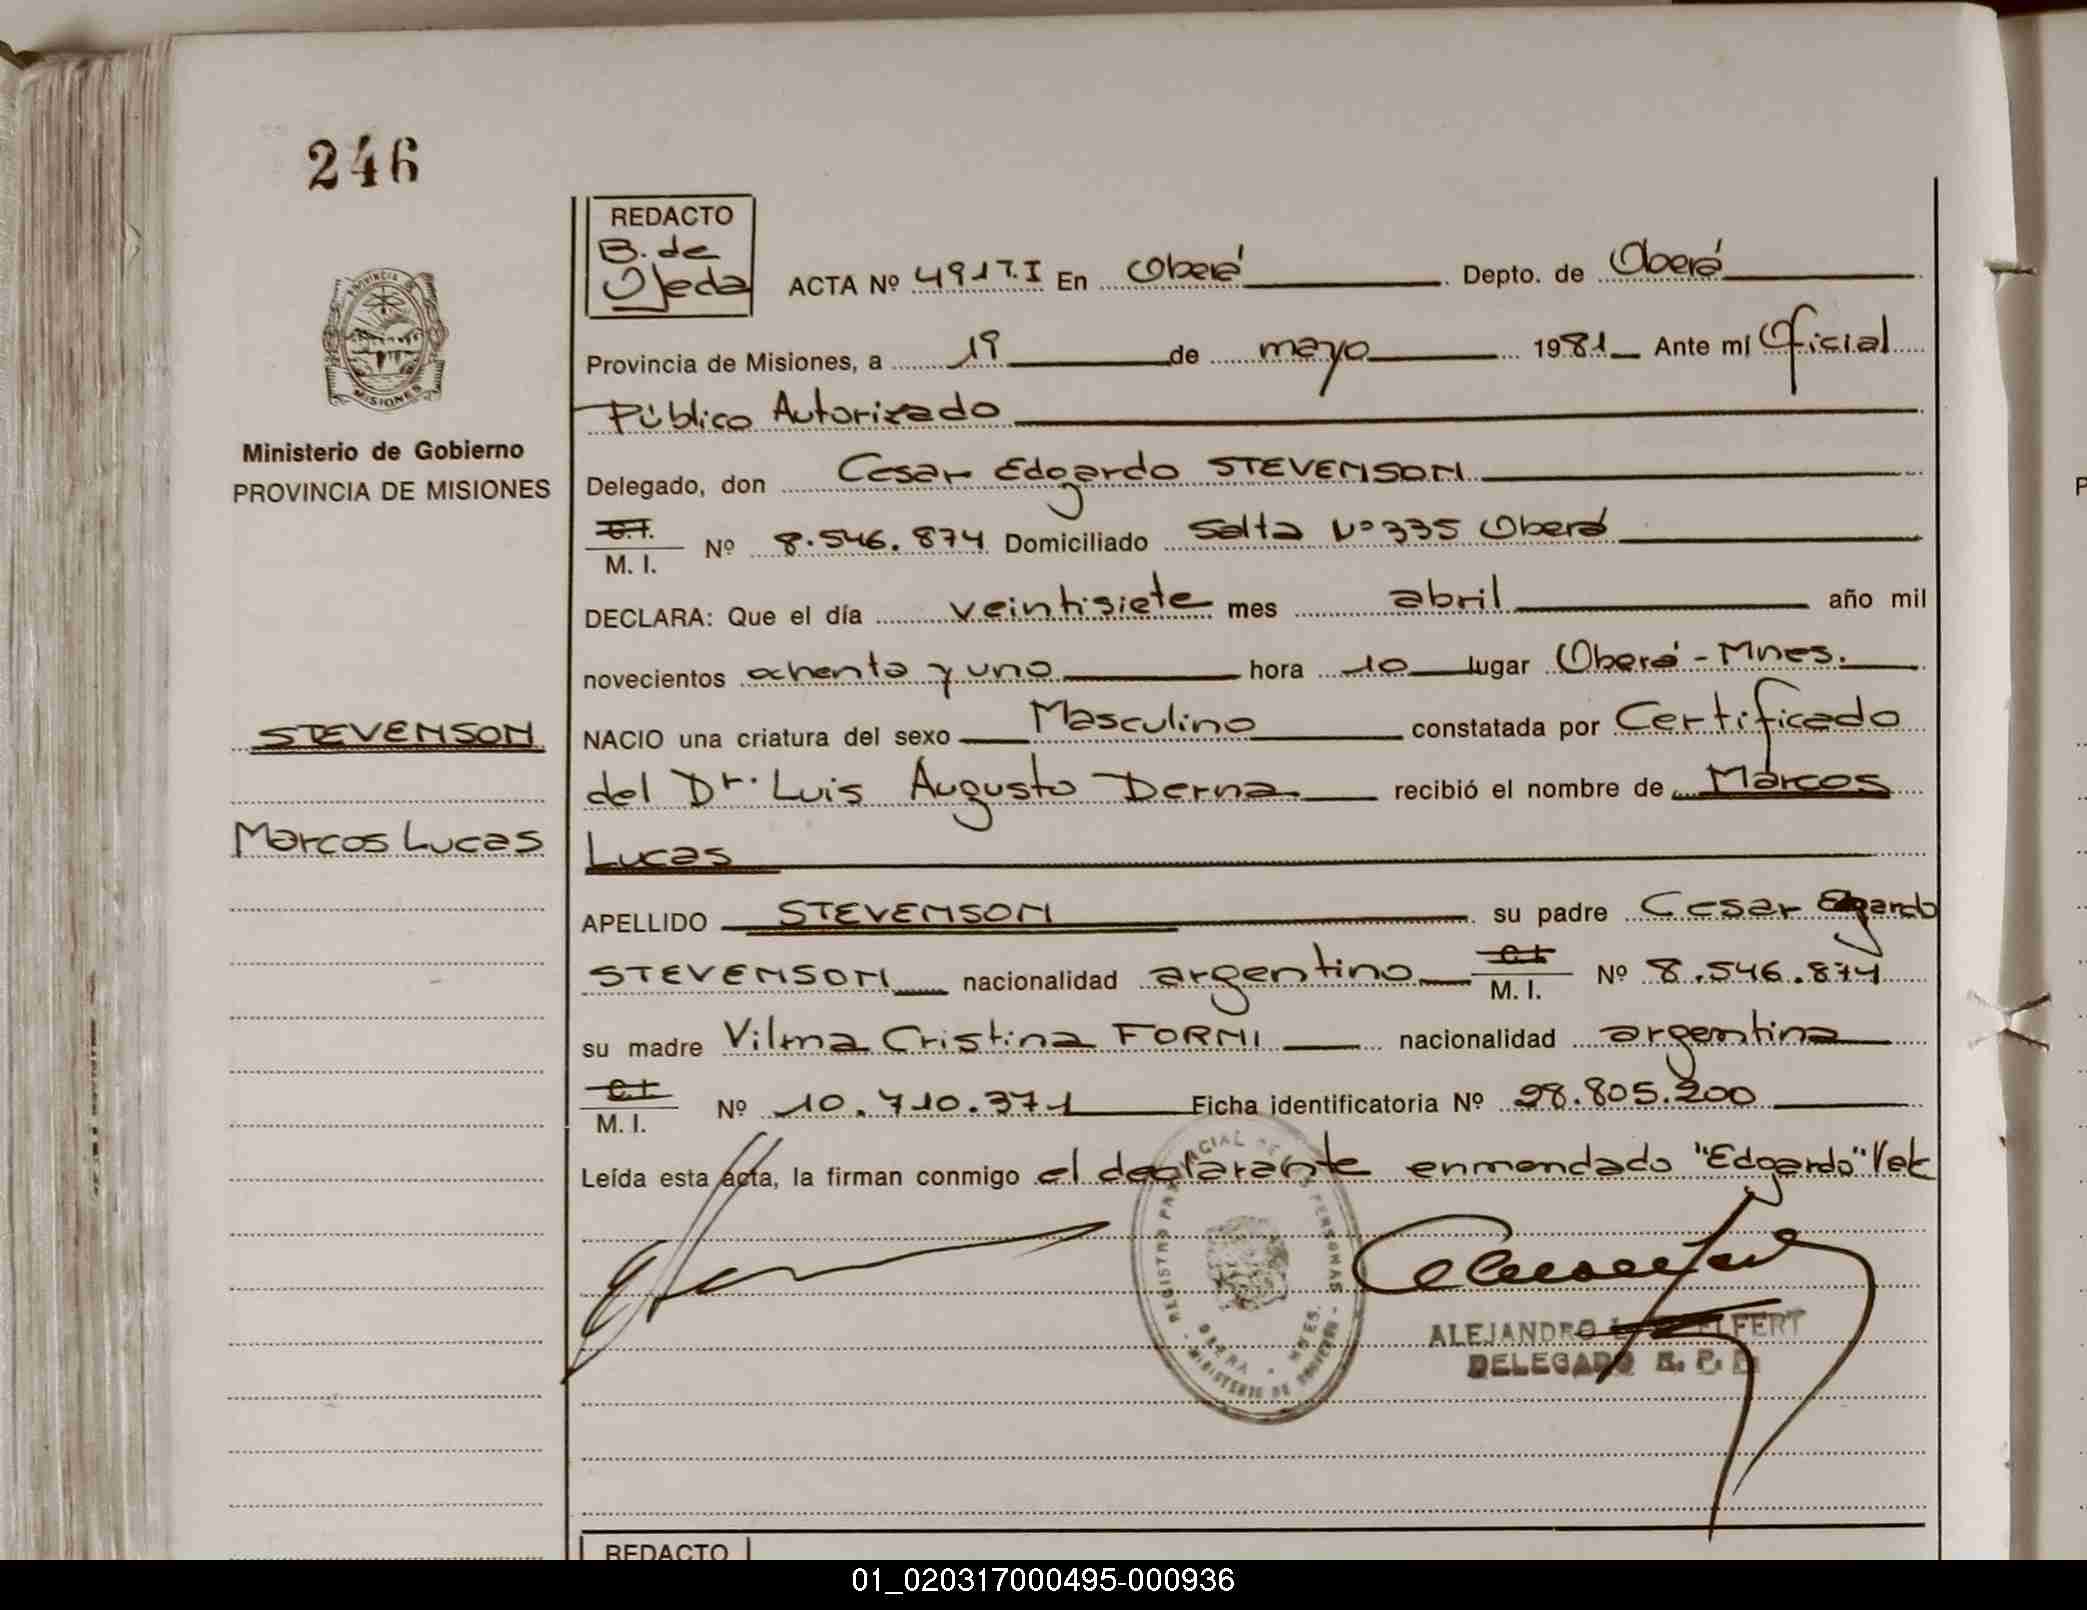 246
REDACTO
B. de
Ojeda
ACTA Nº 4917.I En Oberá Depto. de Oberá
Provincia de Misiones, a 19 de mayo 1981 Ante mi Oficial
Público Autorizado
Ministerio de Gobierno
PROVINCIA DE MISIONES
Delegado, don Cesar Edgardo STEVENSON
C.I.
M. I. Nº 8.546.874 Domiciliado Salta Nº 335 Oberá
DECLARA: Que el día veintisiete mes abril año mil
novecientos ochenta y uno hora 10 lugar Oberá - Mnes.
STEVENSON
NACIO una criatura del sexo Masculino constatada por Certificado
del Dr. Luis Augusto Derna recibió el nombre de Marcos
Marcos Lucas
Lucas
APELLIDO STEVENSON su padre Cesar Edgardo
STEVENSON nacionalidad argentino C.I. M. I. Nº 8.546.874
su madre Vilma Cristina FORNI nacionalidad argentina
C.I.
M. I. Nº 10.710.371 Ficha identificatoria Nº 28.805.200
Leída esta acta, la firman conmigo el declarante enmendado "Edgardo" Vale
REGISTRO PROVINCIAL DE LAS PERSONAS
OBERA - MNES.
MINISTERIO DE GOBIERNO
ALEJANDRO
DELEGADO R. P. P.
REDACTO
01_020317000495-000936